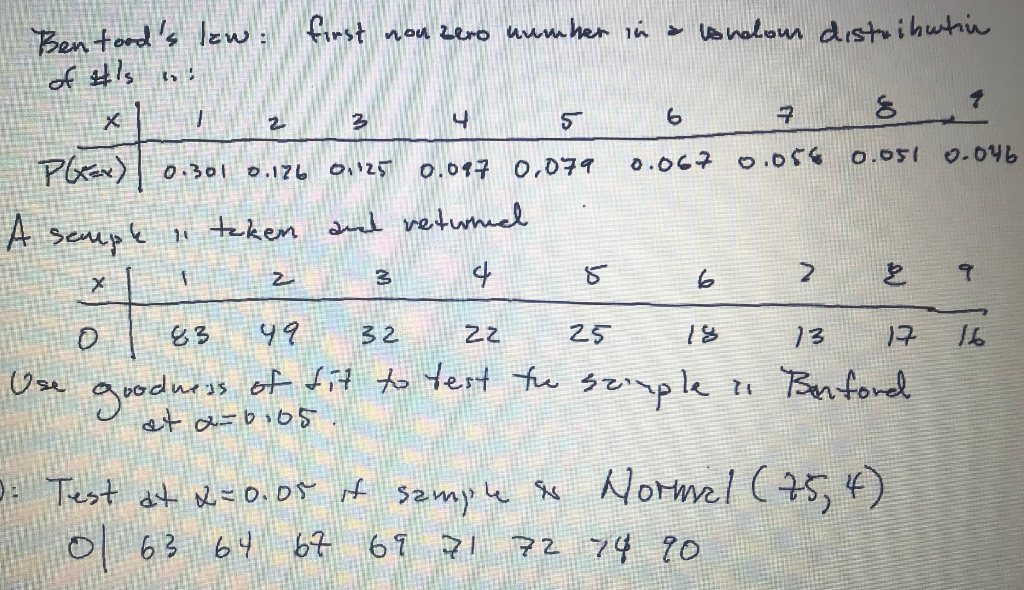 Benford's law: first non zero number in a random distribution
of #'s is:
x | 1 2 3 4 5 6 7 8 9
P(X=x) | 0.301 0.176 0.125 0.097 0.079 0.067 0.058 0.051 0.046
A sample is taken and returned
x | 1 2 3 4 5 6 7 8 9
O | 83 49 32 22 25 18 13 17 16
Use goodness of fit to test the sample is Benford
at α=0.05.
: Test at α=0.05 if sample is Normal (75, 4)
O | 63 64 67 69 71 72 74 90